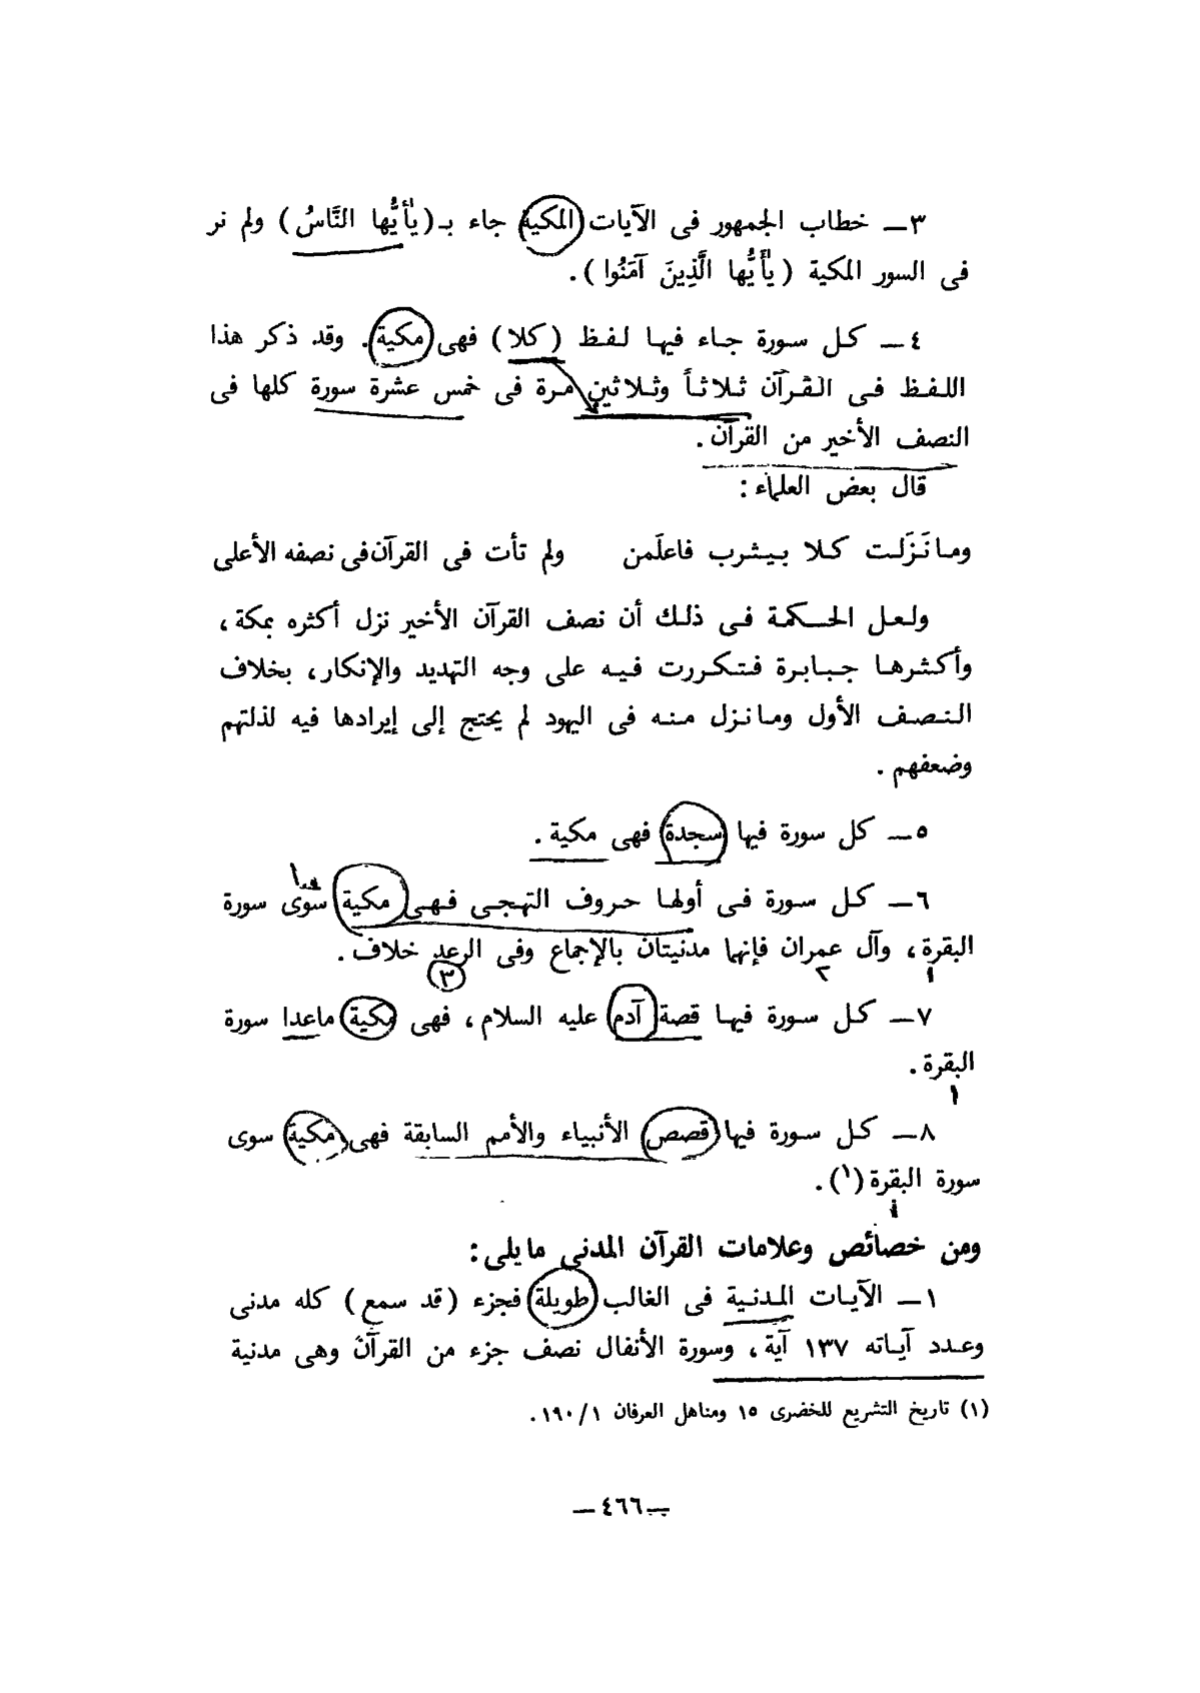 ٣ــ خطاب الجمهور فى الآيات المكية جاء بـ (يأَيُّها النَّاسُ) ولم نر
فى السور المكية (يأَيُّها الَّذِينَ آمَنُوا).
٤ــ كل سورة جاء فيها لفظ (كلا) فهى مكية. وقد ذكر هذا
اللفظ فى القرآن ثلاثاً وثلاثين مرة فى خمس عشرة سورة كلها فى
النصف الأخير من القرآن.
قال بعض العلماء:
وما نَزَلت كلا بيثرب فاعلَمن ولم تأت فى القرآن فى نصفه الأعلى
ولعل الحكمة فى ذلك أن نصف القرآن الأخير نزل أكثره بمكة،
وأكثرها جبابرة فتكررت فيه على وجه التهديد والإنكار، بخلاف
النصف الأول وما نزل منه فى اليهود لم يحتج إلى إيرادها فيه لذلتهم
وضعفهم.
٥ــ كل سورة فيها سجدة فهى مكية.
٦ــ كل سورة فى أولها حروف التهجى فهى مكية سوى سورة
البقرة، وآل عمران فإنها مدنيتان بالإجماع وفى الرعد خلاف.
١ ٢ ٣
٧ــ كل سورة فيها قصة آدم عليه السلام، فهى مكية ماعدا سورة
البقرة.
١
٨ــ كل سورة فيها قصص الأنبياء والأمم السابقة فهى مكية سوى
سورة البقرة (١).
١
ومن خصائص وعلامات القرآن المدنى مايلى:
١ــ الآيات المدنية فى الغالب طويلة فجزء (قد سمع) كله مدنى
وعدد آياته ١٣٧ آية، وسورة الأنفال نصف جزء من القرآن وهى مدنية
(١) تاريخ التشريع للخضرى ١٥ ومناهل العرفان ١/١٩٠.
ــ ٤٦٦ ــ